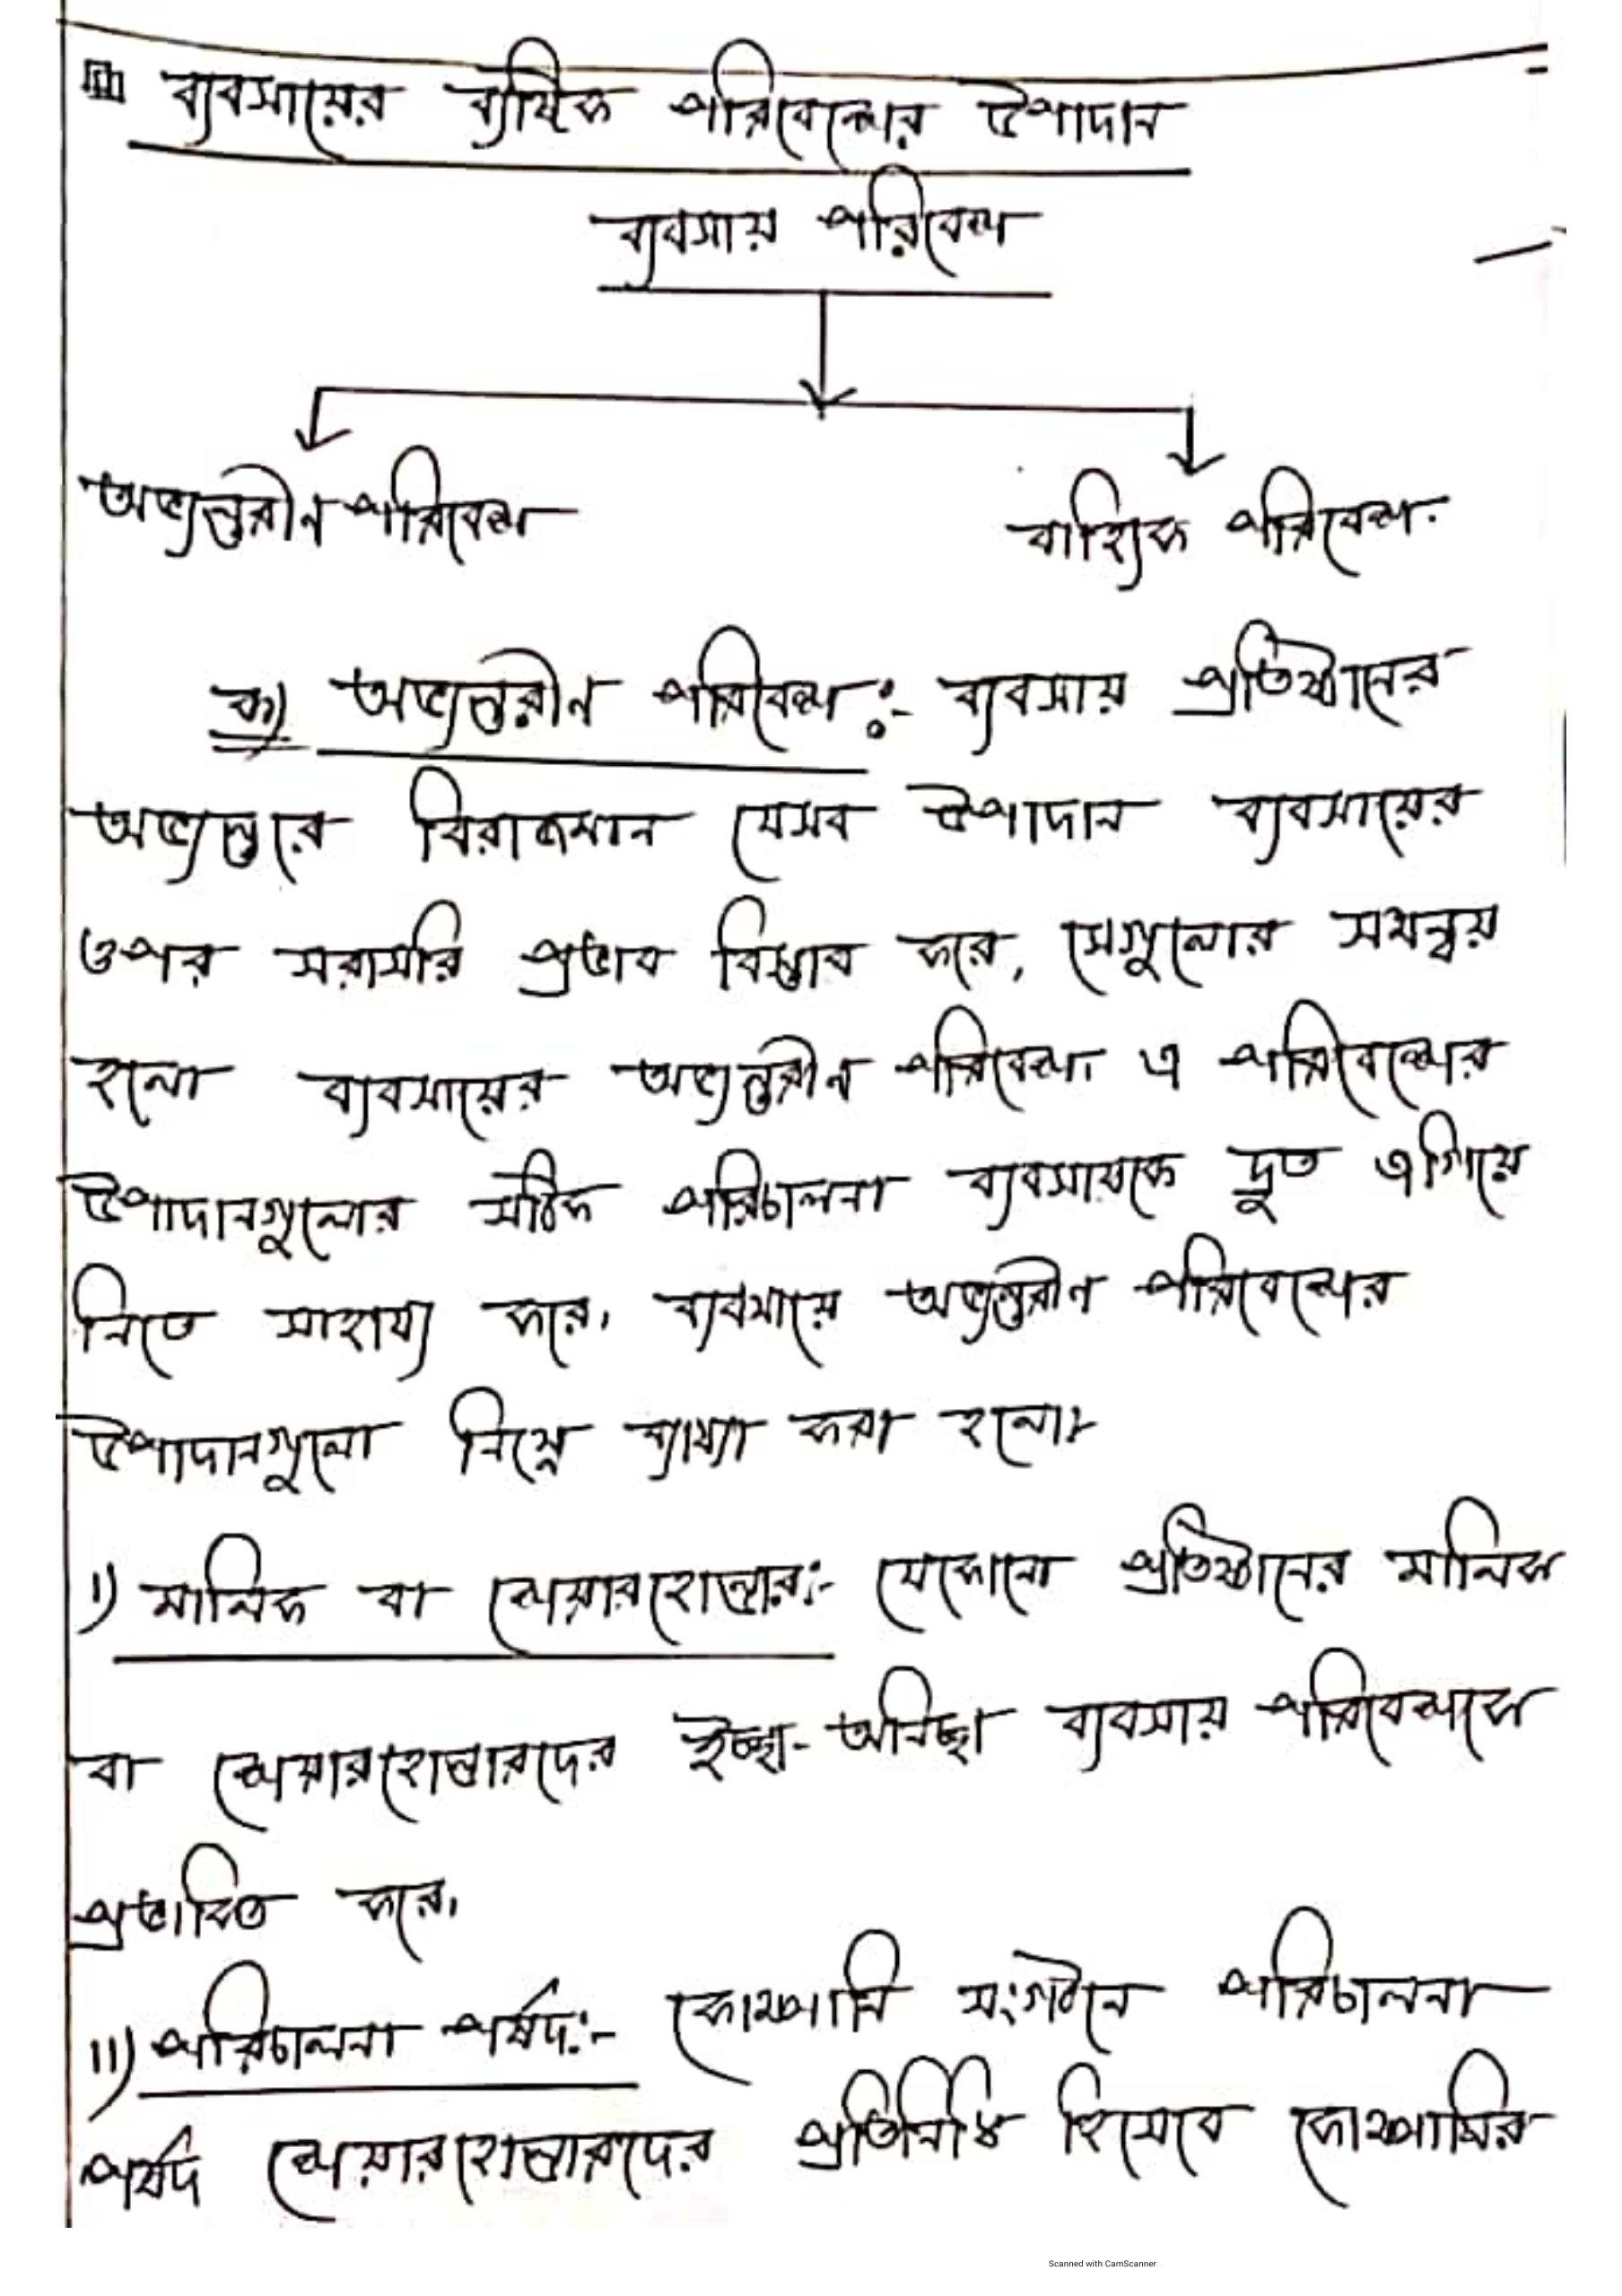 ব্যবসায়ের ব্যষ্টিক পরিবেশের উপাদান
ব্যবসায় পরিবেশ
অভ্যন্তরীন পরিবেশ
বাহ্যিক পরিবেশ
ক) অভ্যন্তরীন পরিবেশ :- ব্যবসায় প্রতিষ্ঠানের
অভ্যন্তরে বিরাজমান যেসব উপাদান ব্যবসায়ের
ওপর সরাসরি প্রভাব বিস্তার করে, সেগুলোর সমন্বয়
হলো ব্যবসায়ের অভ্যন্তরীন পরিবেশ। এ পরিবেশের
উপাদানগুলোর সঠিক পরিচালনা ব্যবসায়কে দ্রুত এগিয়ে
নিতে সাহায্য করে। ব্যবসায়ে অভ্যন্তরীন পরিবেশের
উপাদানগুলো নিম্নে ব্যাখ্যা করা হলো।
i) মালিক বা শেয়ারহোল্ডার:- যেকোনো প্রতিষ্ঠানের মালিক
বা শেয়ারহোল্ডারদের ইচ্ছা-অনিচ্ছা ব্যবসায় পরিবেশকে
প্রভাবিত করে।
ii) পরিচালনা পর্ষদ:- কোম্পানি সংগঠনে পরিচালনা
পর্ষদ শেয়ারহোল্ডারদের প্রতিনিধি হিসেবে কোম্পানির
Scanned with CamScanner